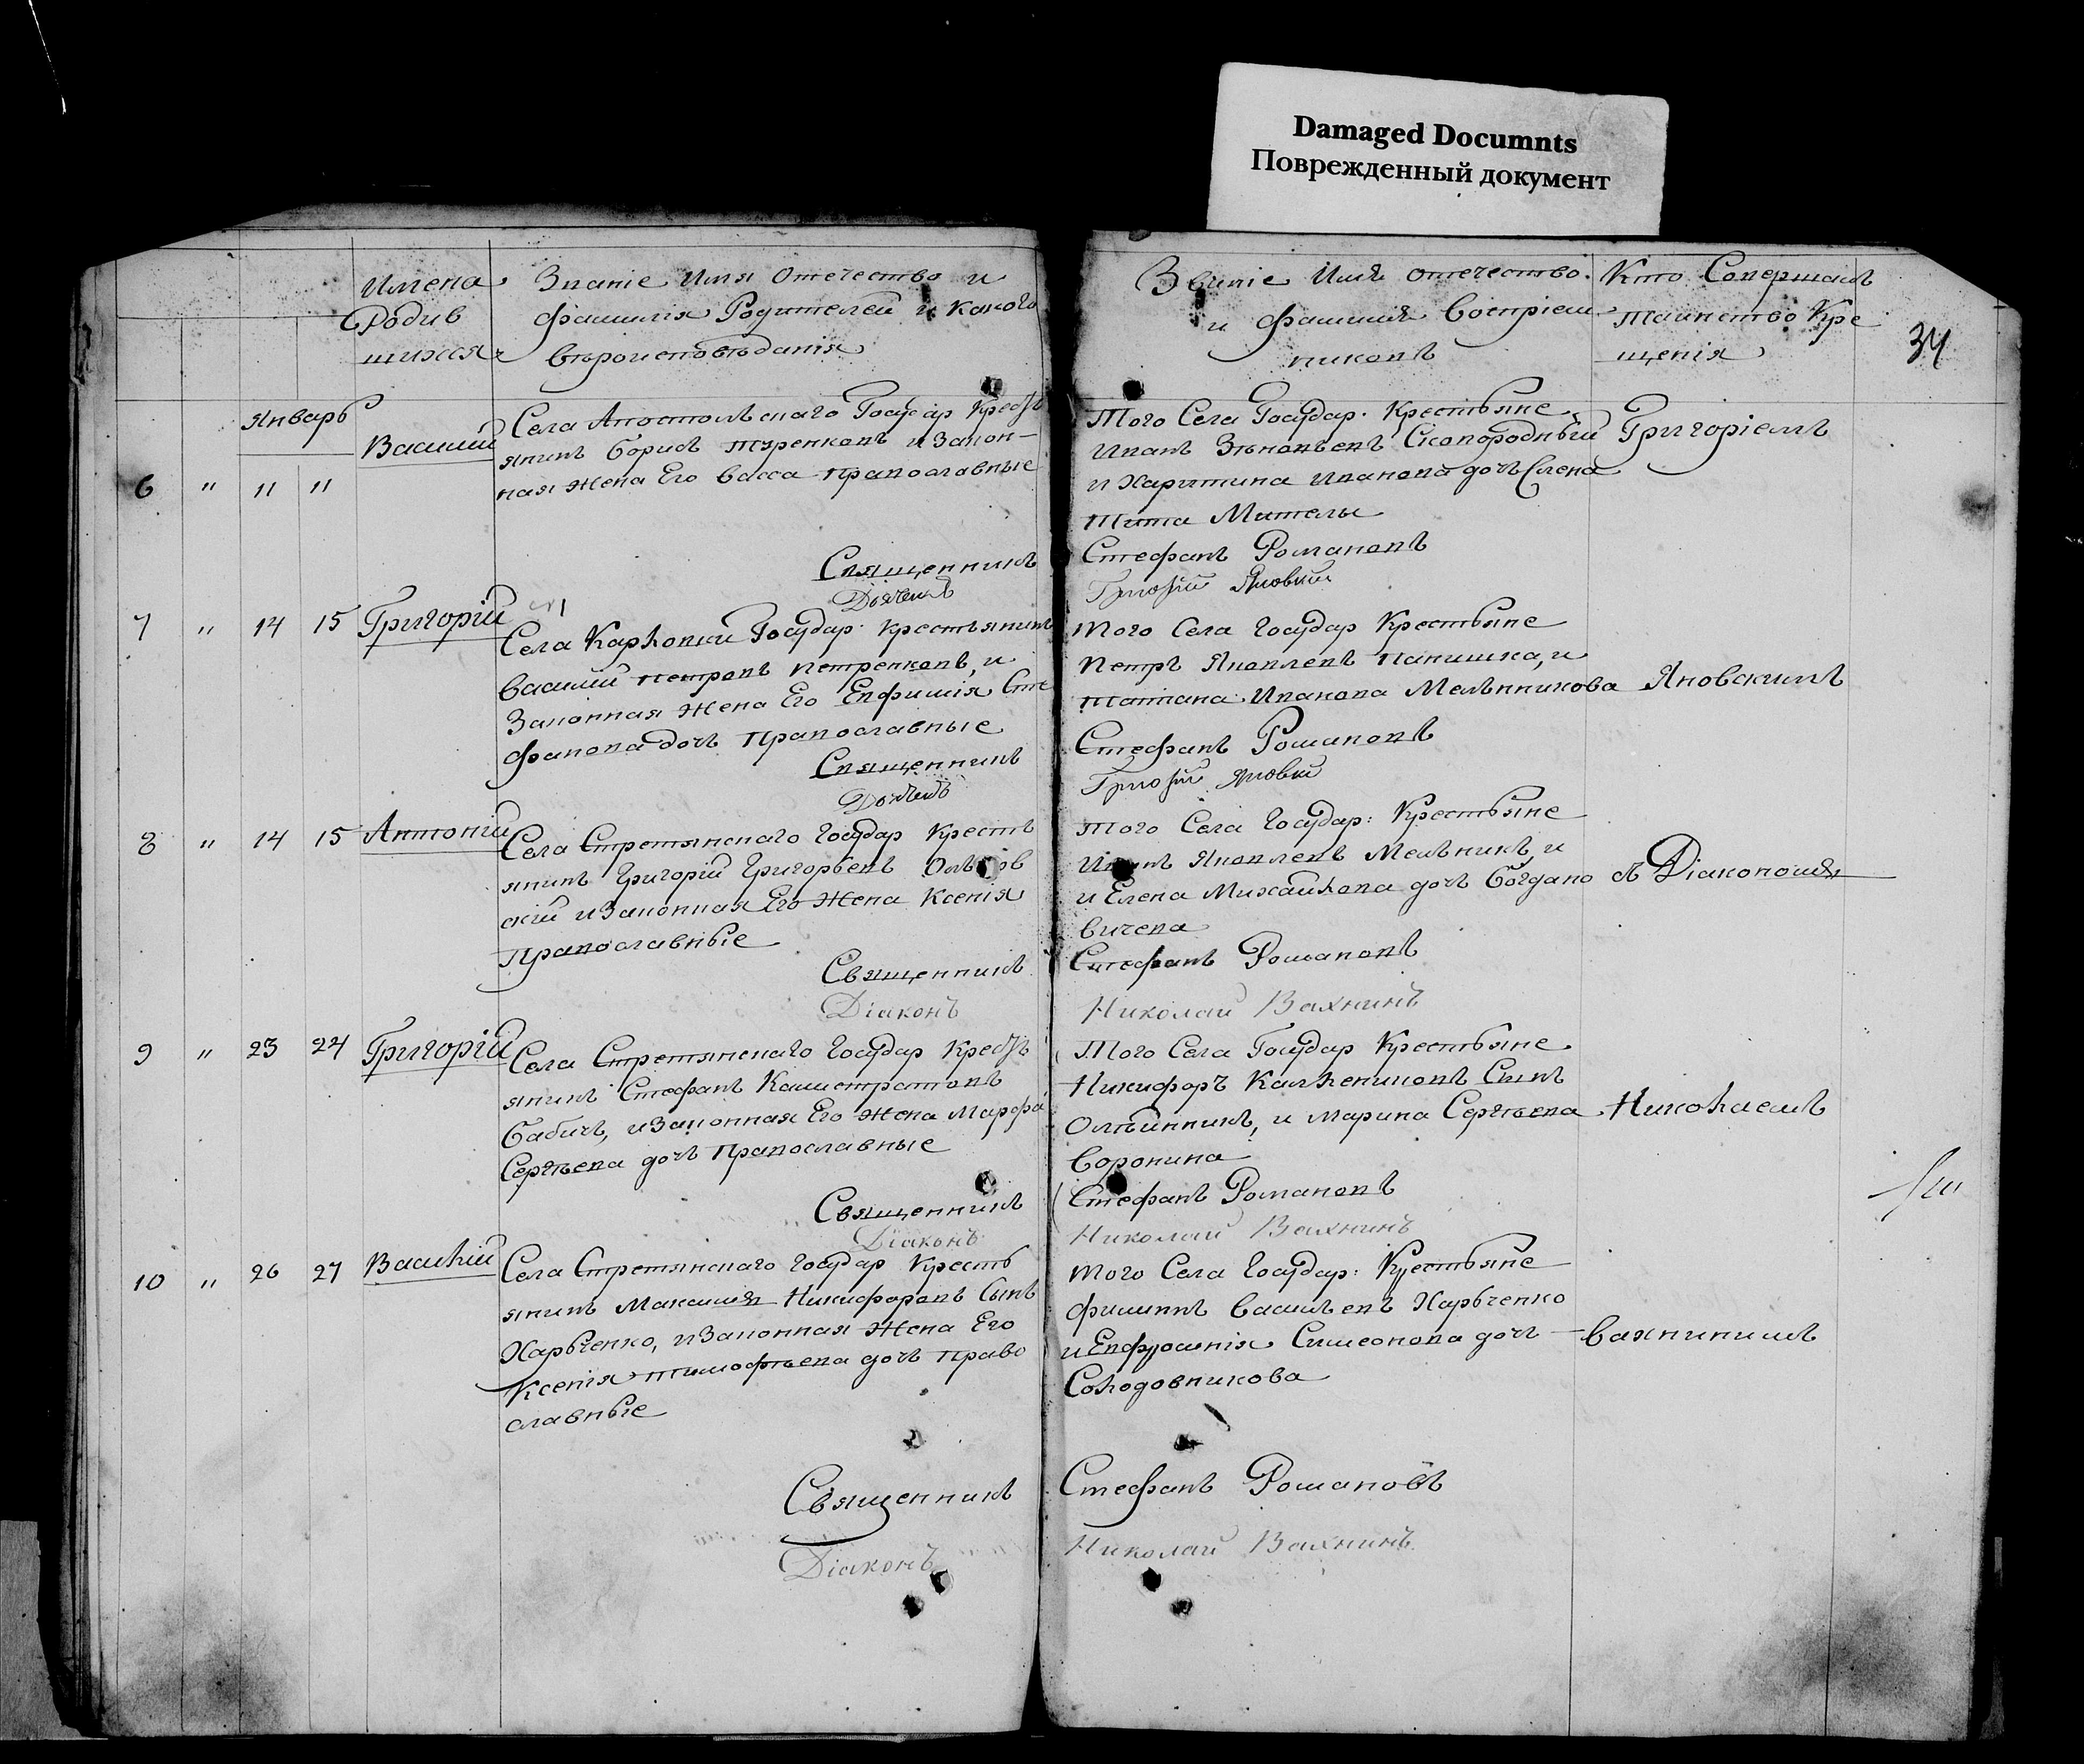 Damaged Documnts
Поврежденный документ
34
Имена
Родив
шихся
Званіе Имя Отечество и
фамилія Родителей и какого
вѣроисповѣданія
Званіе Имя отечество
и фамилия Воспріем
никовъ
Кто Совершалъ
таинство Кре
щенія
Январь
6 " 11 11
Василий
Села Апостольскаго Государ Кресть
янинъ Борисъ Туренковъ и Закон-
ная жена Его Васса православные
Того Села Государ. Крестьяне
Иванъ Зѣновьевъ Сковородный
и Харитина Иванова дочь Слена
Тита Мителы
Григоріемъ
Священникъ
Стефанъ Романовъ
Дьячекъ
Григорій Яновский
7 " 14 15 Григорій
Села Карловки Государ. крестьянинъ
Василий Петровъ Петренковъ, и
Законная жена Его Евфимія Сте
фанова дочь Православные
Того Села Государ Крестьяне
Петръ Яковлевъ Папишка, и
Татиана Иванова Мельникова
Яновскимъ
Священникъ
Стефанъ Романовъ
Дьячекъ
Григорій Яновский
8 " 14 15 Антоній
Села Стретинскаго Государ Кресть
янинъ Григорій Григорьевъ
скій и Законная Его Жена Ксенія
Православные
Того Села Государ: Крестьяне
Иванъ Яковлевъ Мельникъ, и
и Елена Михайлова дочь Богдано
вичева
съ Діакономъ
Священникъ
Стефанъ Романовъ
Діаконъ
Николай Вахнинъ
9 " 23 24 Григорій
Села Стретинскаго Государ Кресть
янинъ Стефанъ Калистратовъ
Бабичъ, и Законная Его жена Марфа
Сергѣева дочь Православные
Того Села Государ Крестьяне
Никифоръ Калениковъ Сынъ
Олѣйникъ, и Марина Сергѣева
Воронина
Николаемъ
Священникъ
Стефанъ Романовъ
Діаконъ
Николай Вахнинъ
10 " 26 27 Василий
Села Стретинскаго Государ Кресть
янинъ Максимъ Никифоровъ Сынъ
Харьченко, и Законная Жена Его
Ксенія Тимофѣева дочь Право
славные
Того Села Государ: Крестьяне
Филиппъ Васильевъ Харьченко
и Евфросинія Симеонова дочь
Солодовникова
Вахнинимъ
Священникъ
Стефанъ Романовъ
Діаконъ
Николай Вахнинъ